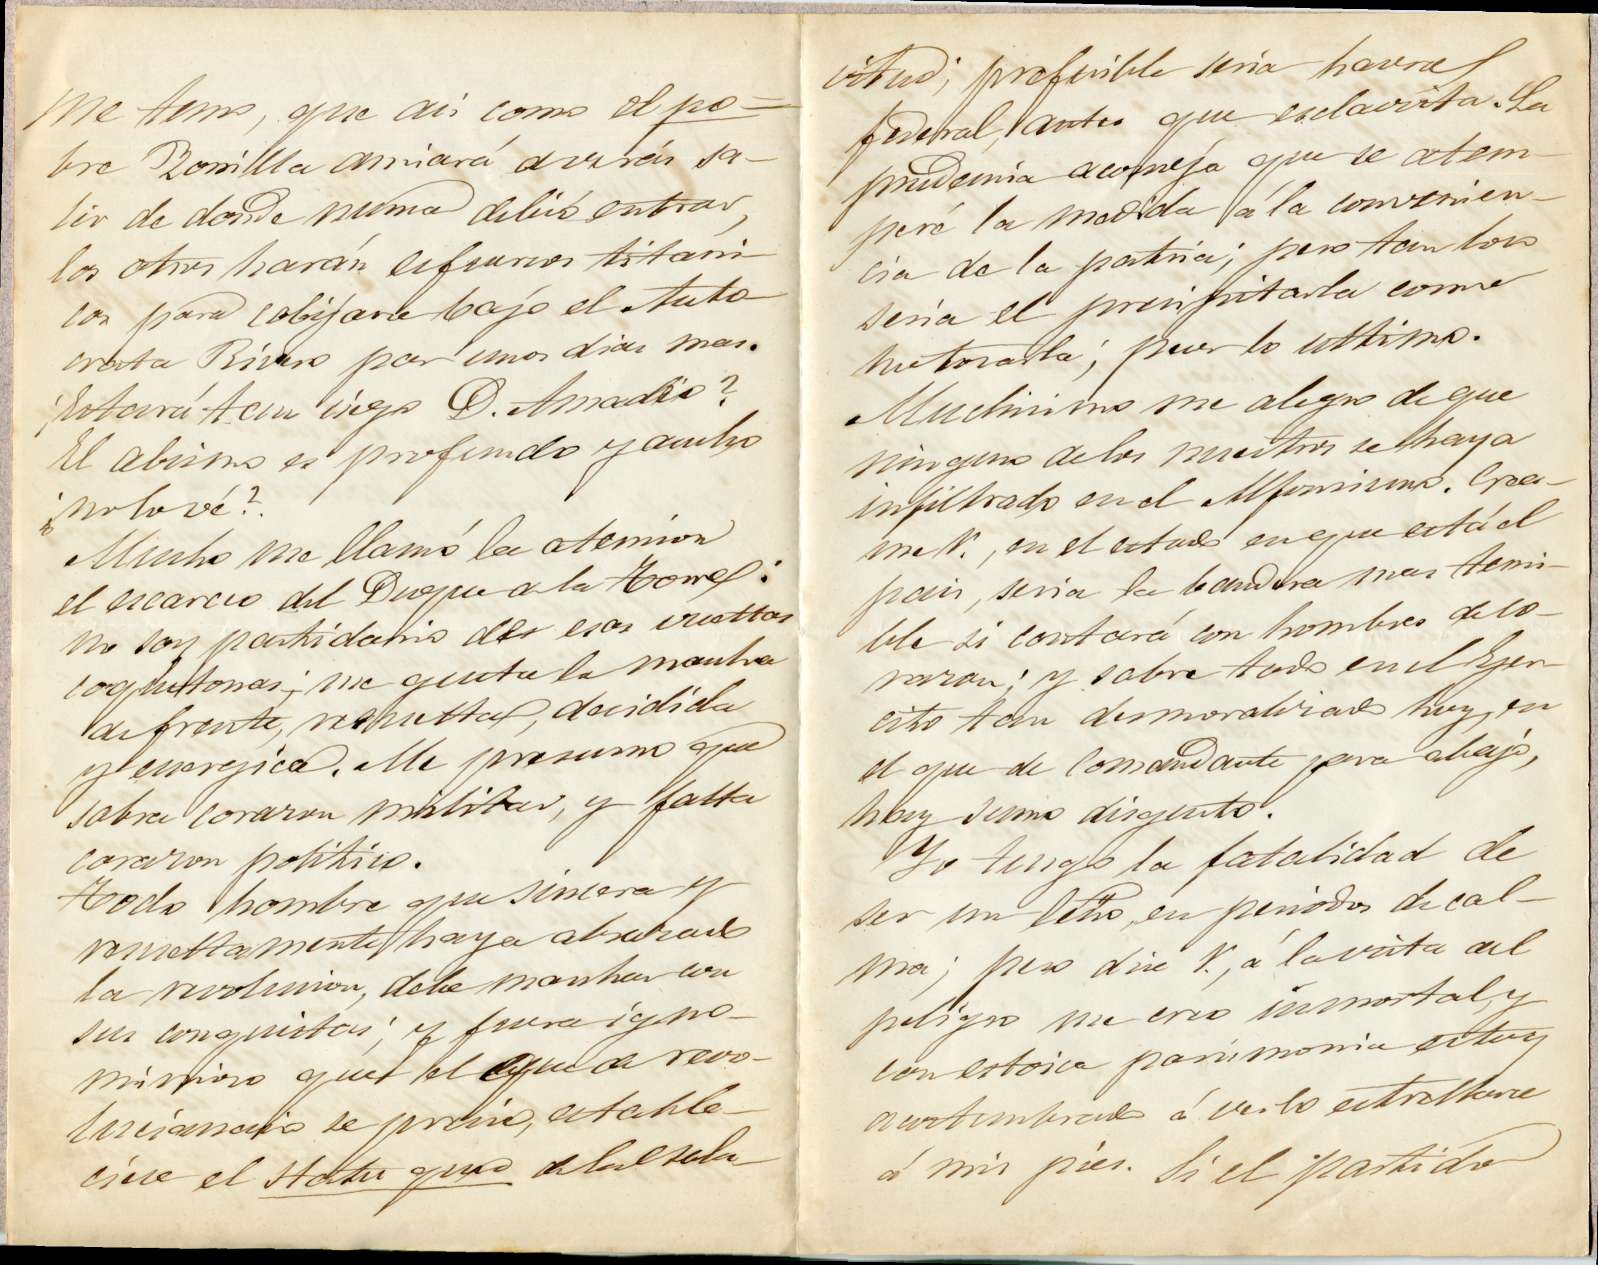 Me temo, que asi como el po=
bre Bonilla ansiará de veras sa-
lir de donde nunca debió entrar,
los otros harán esfuerzos titani-
cos para cobijarse bajo el Auto-
crata Rivero por unos dias mas.
¿Estará tan ciego D. Amadeo?
El abismo es profundo y ancho
¿no lo vé?.
Mucho me llamó la atencion
el escarceo del Duque de la Torre:
no soy partidario de esas vueltas
coquetonas; me gusta la marcha
de frente, resuelta, decidida
y energica. Me presumo que
sobra corazon militar, y falta
corazon politico.
Todo hombre que sincera y
resueltamente haya abrazado
la revolucion, debe marchar con
sus conquistas; y fuera igno-
minioso que el que de revo-
lucionario se precia, estable-
ciese el statu quo de la escla-
vitud; preferible seria hacerse
federal, antes que esclavista. La
prudencia aconseja que se atem-
peré la medida á la convenien-
cia de la patria; pero tan loco
seria el precipitarla como
retrasarla; peor lo ultimo.
Muchisimo me alegro de que
ninguno de los nuestros se haya
infiltrado en el Alfonsismo. Crea-
me V., en el estado en que está el
pais, seria la bandera mas temi-
ble si contará con hombres de co-
razon; y sobre todo en el Ejer-
cito tan desmoralizado hoy, en
el que de Comandante para abajo,
hay sumo disgusto.
Yo tengo la fatalidad de
ser un leño, en periodos de cal-
ma; pero dice V., á la vista del
peligro me creo inmortal, y
con estoica parsimonia estoy
acostumbrado á verlo estrellarse
á mis pies. Si el partido